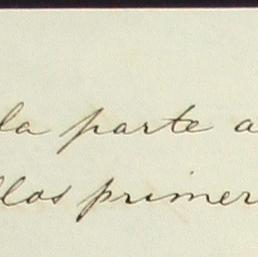 la parte a
llos primer